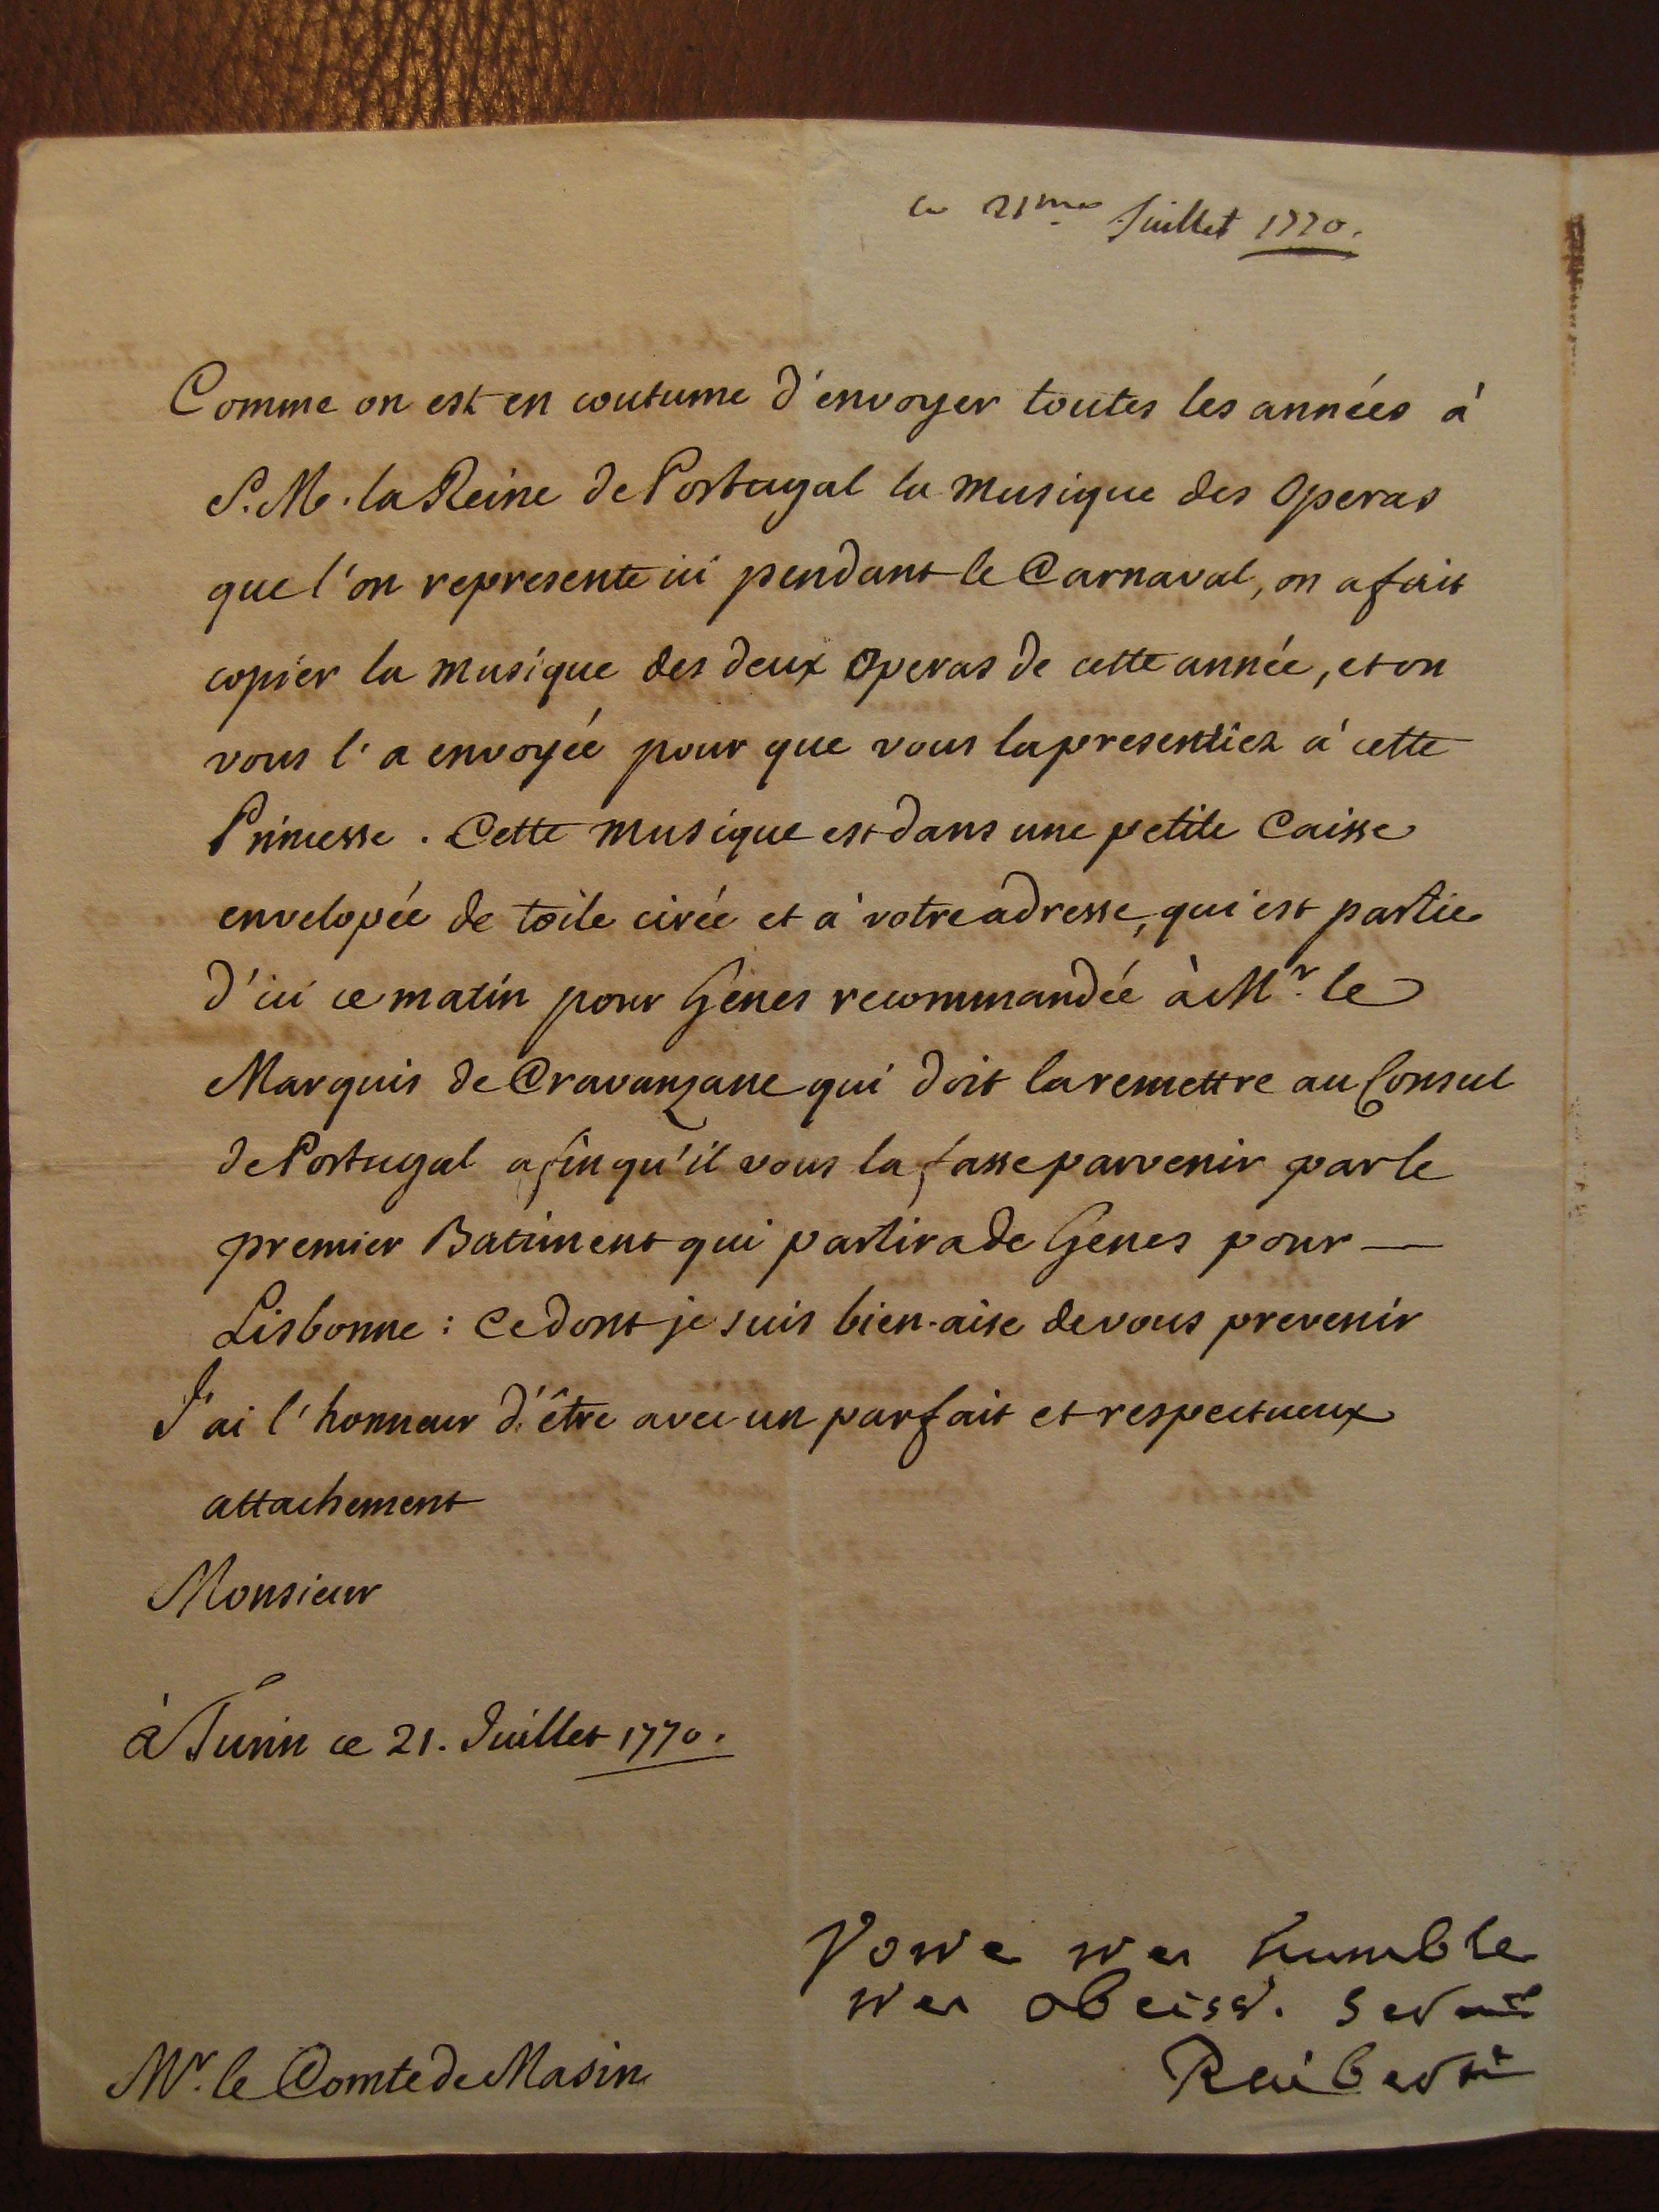 ce 21me Juillet 1770.
Comme on est en coutume d'envoyer toutes les années à
S. M. la Reine de Portugal la musique des Operas
que l'on represente ici pendant le Carnaval, on a fait
copier la musique des deux Operas de cette année, et on
vous l'a envoyée pour que vous la presentiez à cette
Princesse. Cette musique est dans une petite Caisse
envelopée de toile cirée et à votre adresse, qui est partie
d'ici ce matin pour Genes recommandée à Mr. le
Marquis de Cravanzane qui doit la remettre au Consul
de Portugal afin qu'il vous la fasse parvenir par le
premier Batiment qui partira de Genes pour —
Lisbonne : Ce dont je suis bien-aise de vous prevenir
J'ai l'honneur d'être avec un parfait et respectueux
attachement
Monsieur
à Turin ce 21. Juillet 1770.
Votre tres humble
tres obeisst. servant
Raiberti
Mr. le Comte de Masin